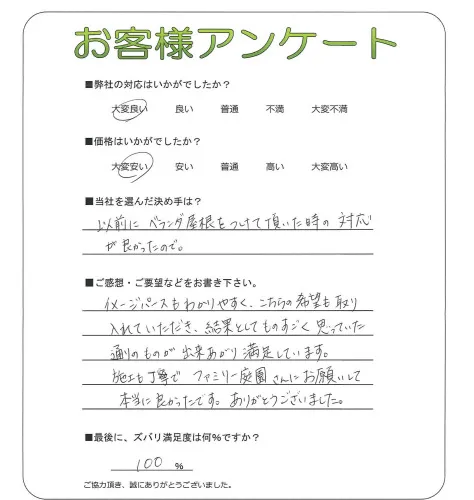 お客様アンケート
■弊社の対応はいかがでしたか？
大変良い 良い 普通 不満 大変不満
■価格はいかがでしたか？
大変安い 安い 普通 高い 大変高い
■当社を選んだ決め手は？
以前に ベランダ屋根をつけて頂いた時の 対応
が良かったので。
■ご感想・ご要望などをお書き下さい。
イメージパースもわかりやすく、こちらの希望も取り
入れていただき、結果としてものすごく思っていた
通りのものが出来あがり満足しています。
施工も丁寧で ファミリー庭園さんにお願いして
本当に良かったです。ありがとうございました。
■最後に、ズバリ満足度は何%ですか？
100 %
ご協力頂き、誠にありがとうございました。